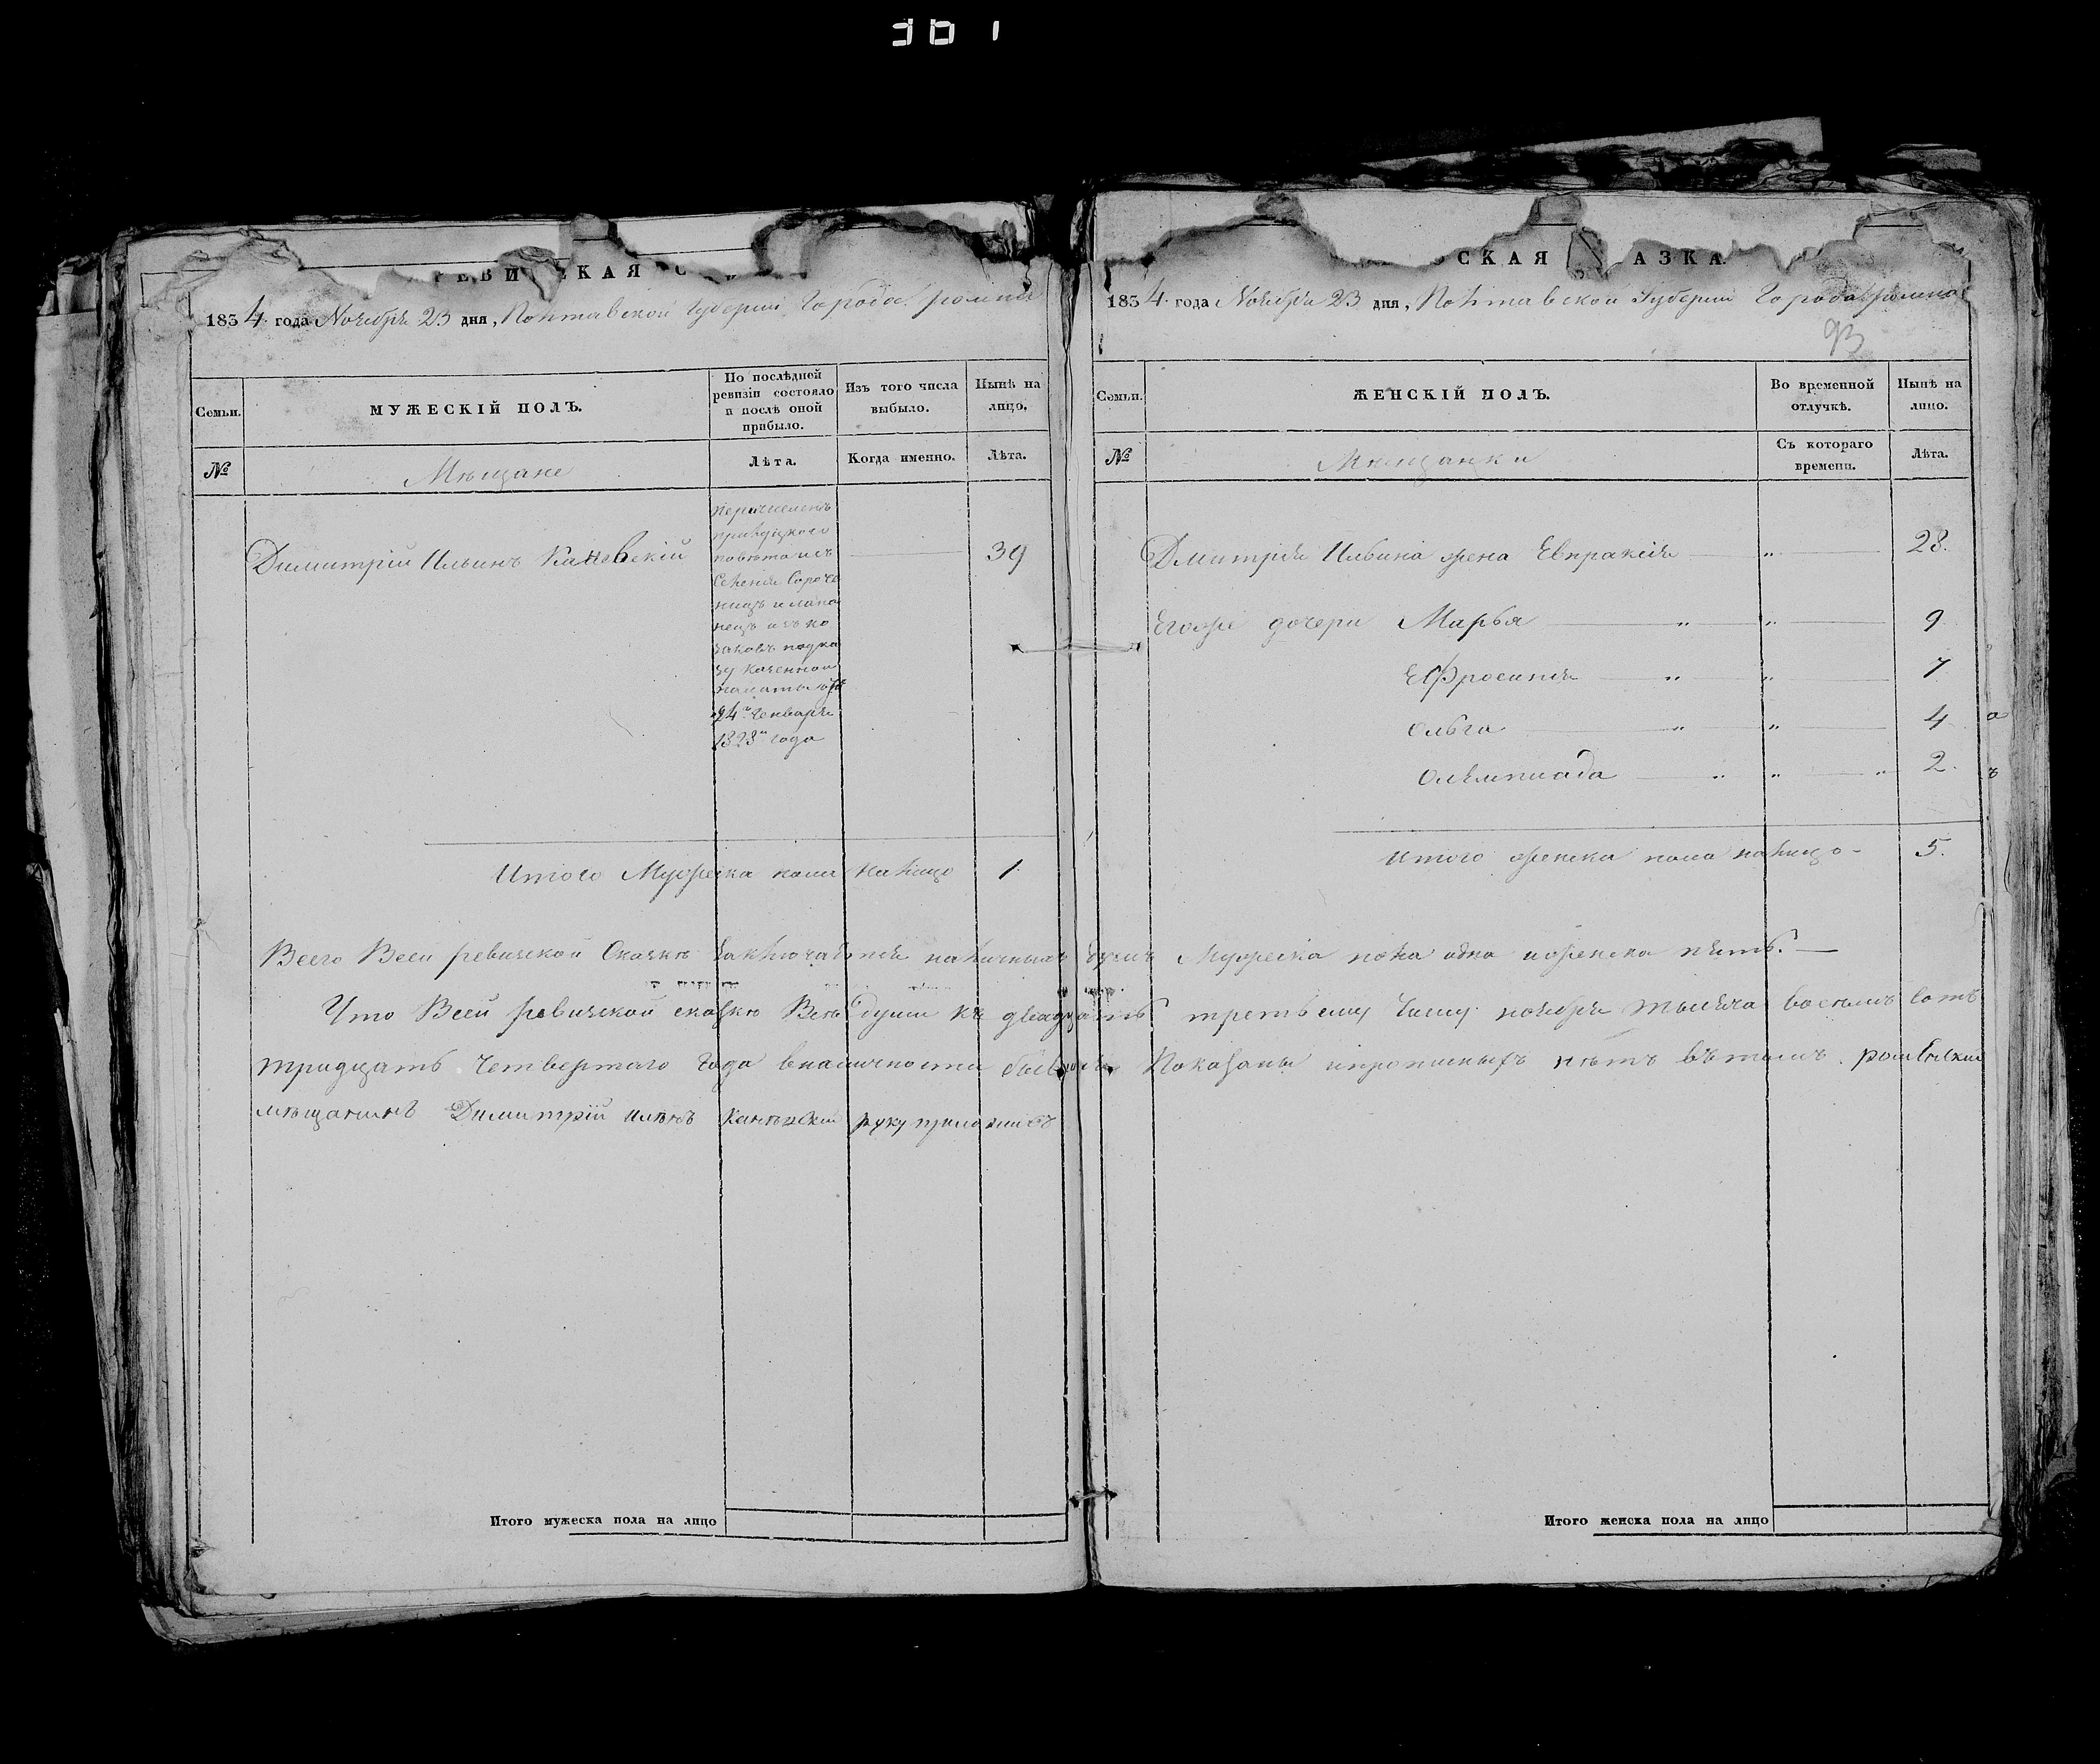 361
РЕВИЖСКАЯ С
1834 года Ноября 23 дня, Полтавской Губернии Города Ромна
Семьи.
МУЖЕСКІЙ ПОЛЪ.
По послѣдней ревизіи состояло и послѣ оной прибыло.
Изъ того числа выбыло.
Нынѣ на лицо.
№
Мѣщане
Лѣта.
Когда именно.
Лѣта.
Димитрій Ильинъ 39
перечисленъ
повѣта изъ
Селенія
заковъ
казенной
палаты
24го Генваря
1828го года
Итого Мужеска пола налицо 1
СКАЯ АЗКА.
1834 года Ноября 23 дня, Полтавской Губернии Города Ромна
93
Семьи.
ЖЕНСКІЙ ПОЛЪ.
Во временной отлучкѣ.
Нынѣ на лицо.
№
Мѣщанки
Съ котораго времени.
Лѣта.
Дмитрія Ильина жена Евпраксія 28.
Егоже дочери Марья 9
Ефросинія 7
Ольга 4
Олѣмпиада 2.
Итого женска пола налицо 5.
Всего Всей ревижской Сказкѣ заключается наличныхъ душъ Мужеска пола одна иженска пять.
Что Всей ревижской сказкѣ Всѣ души къ двадцать третьему числу ноября тысяча восемъ сотъ
тридцать четвертаго года вналичности бывшия Показаны ипрописныхъ нѣтъ вътомъ роменский
мѣщанинъ Димитрій руку приложилъ
Итого мужеска пола на лицо
Итого женска пола на лицо